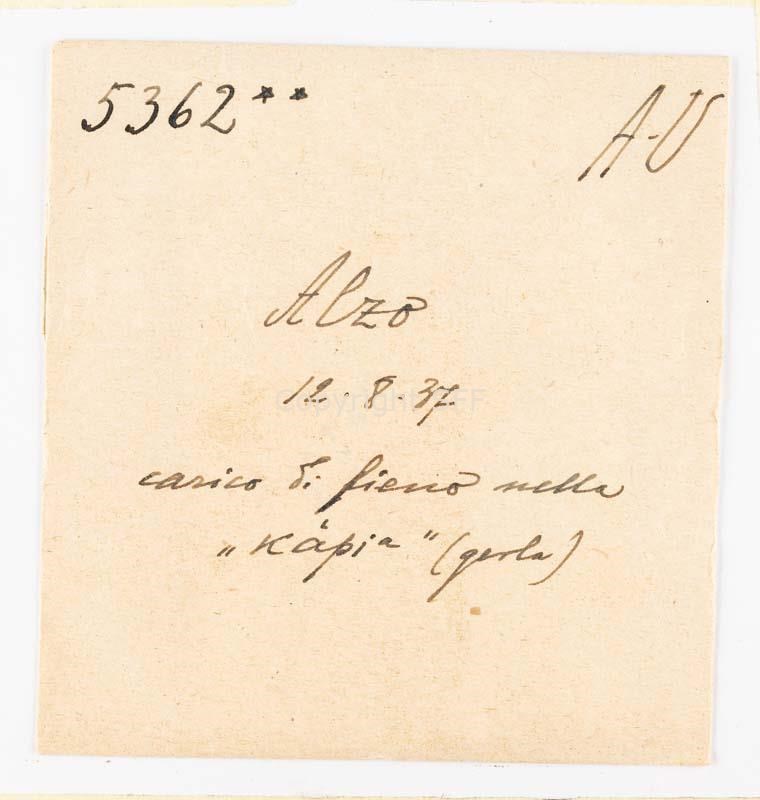 5362**
A-U
Alzo
12.8.37
carico di fieno nella
"Kápia" (gerla)